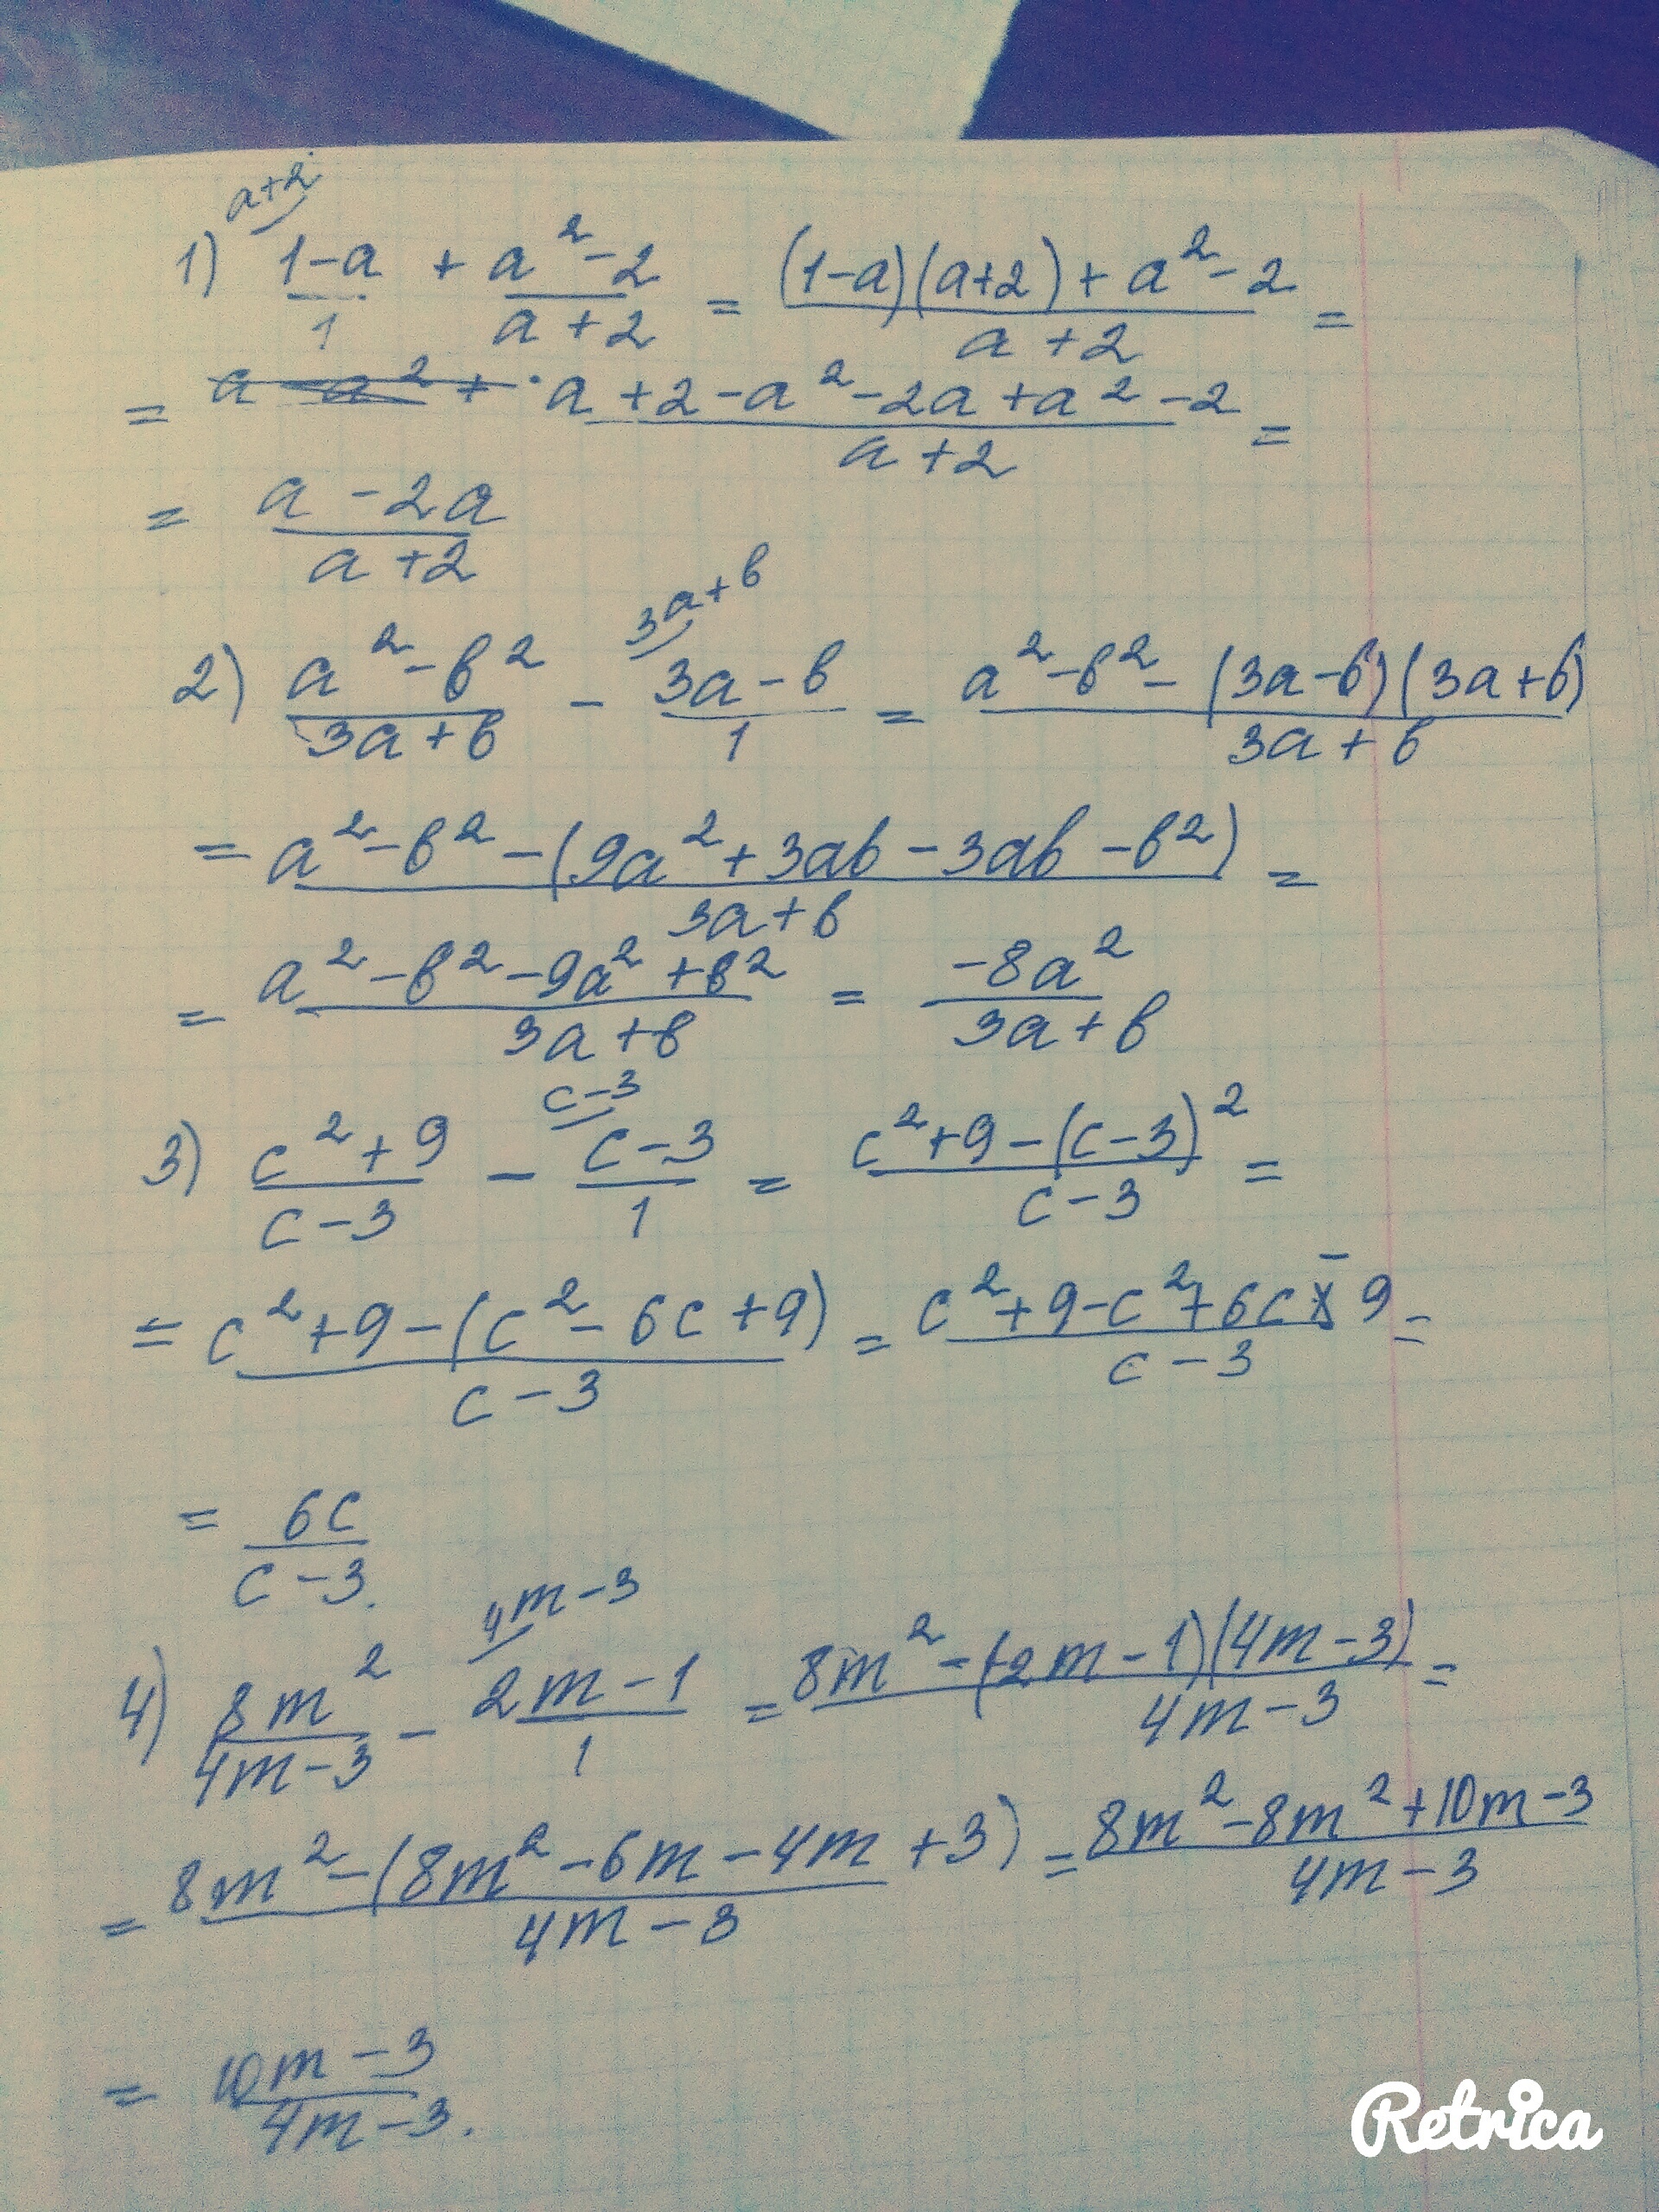 a+2
1) (1-a)/1 + (a²-2)/(a+2) = ((1-a)(a+2)+a²-2)/(a+2) =
= a - a² + a+2-a²-2a+a²-2/(a+2) =
= (a-2a)/(a+2)
3a+b
2) (a²-b²)/(3a+b) - (3a-b)/1 = (a²-b²-(3a-b)(3a+b))/(3a+b)
= (a²-b²-(9a²+3ab-3ab-b²))/(3a+b) =
= (a²-b²-9a²+b²)/(3a+b) = (-8a²)/(3a+b)
c-3
3) (c²+9)/(c-3) - (c-3)/1 = (c²+9-(c-3)²)/(c-3) =
= (c²+9-(c²-6c+9))/(c-3) = (c²+9-c²+6c-9)/(c-3) =
= 6c/(c-3).
4m-3
4) 8m²/(4m-3) - (2m-1)/1 = (8m²-(2m-1)(4m-3))/(4m-3) =
= (8m²-(8m²-6m-4m+3))/(4m-3) = (8m²-8m²+10m-3)/(4m-3)
= (10m-3)/(4m-3).
Retrica